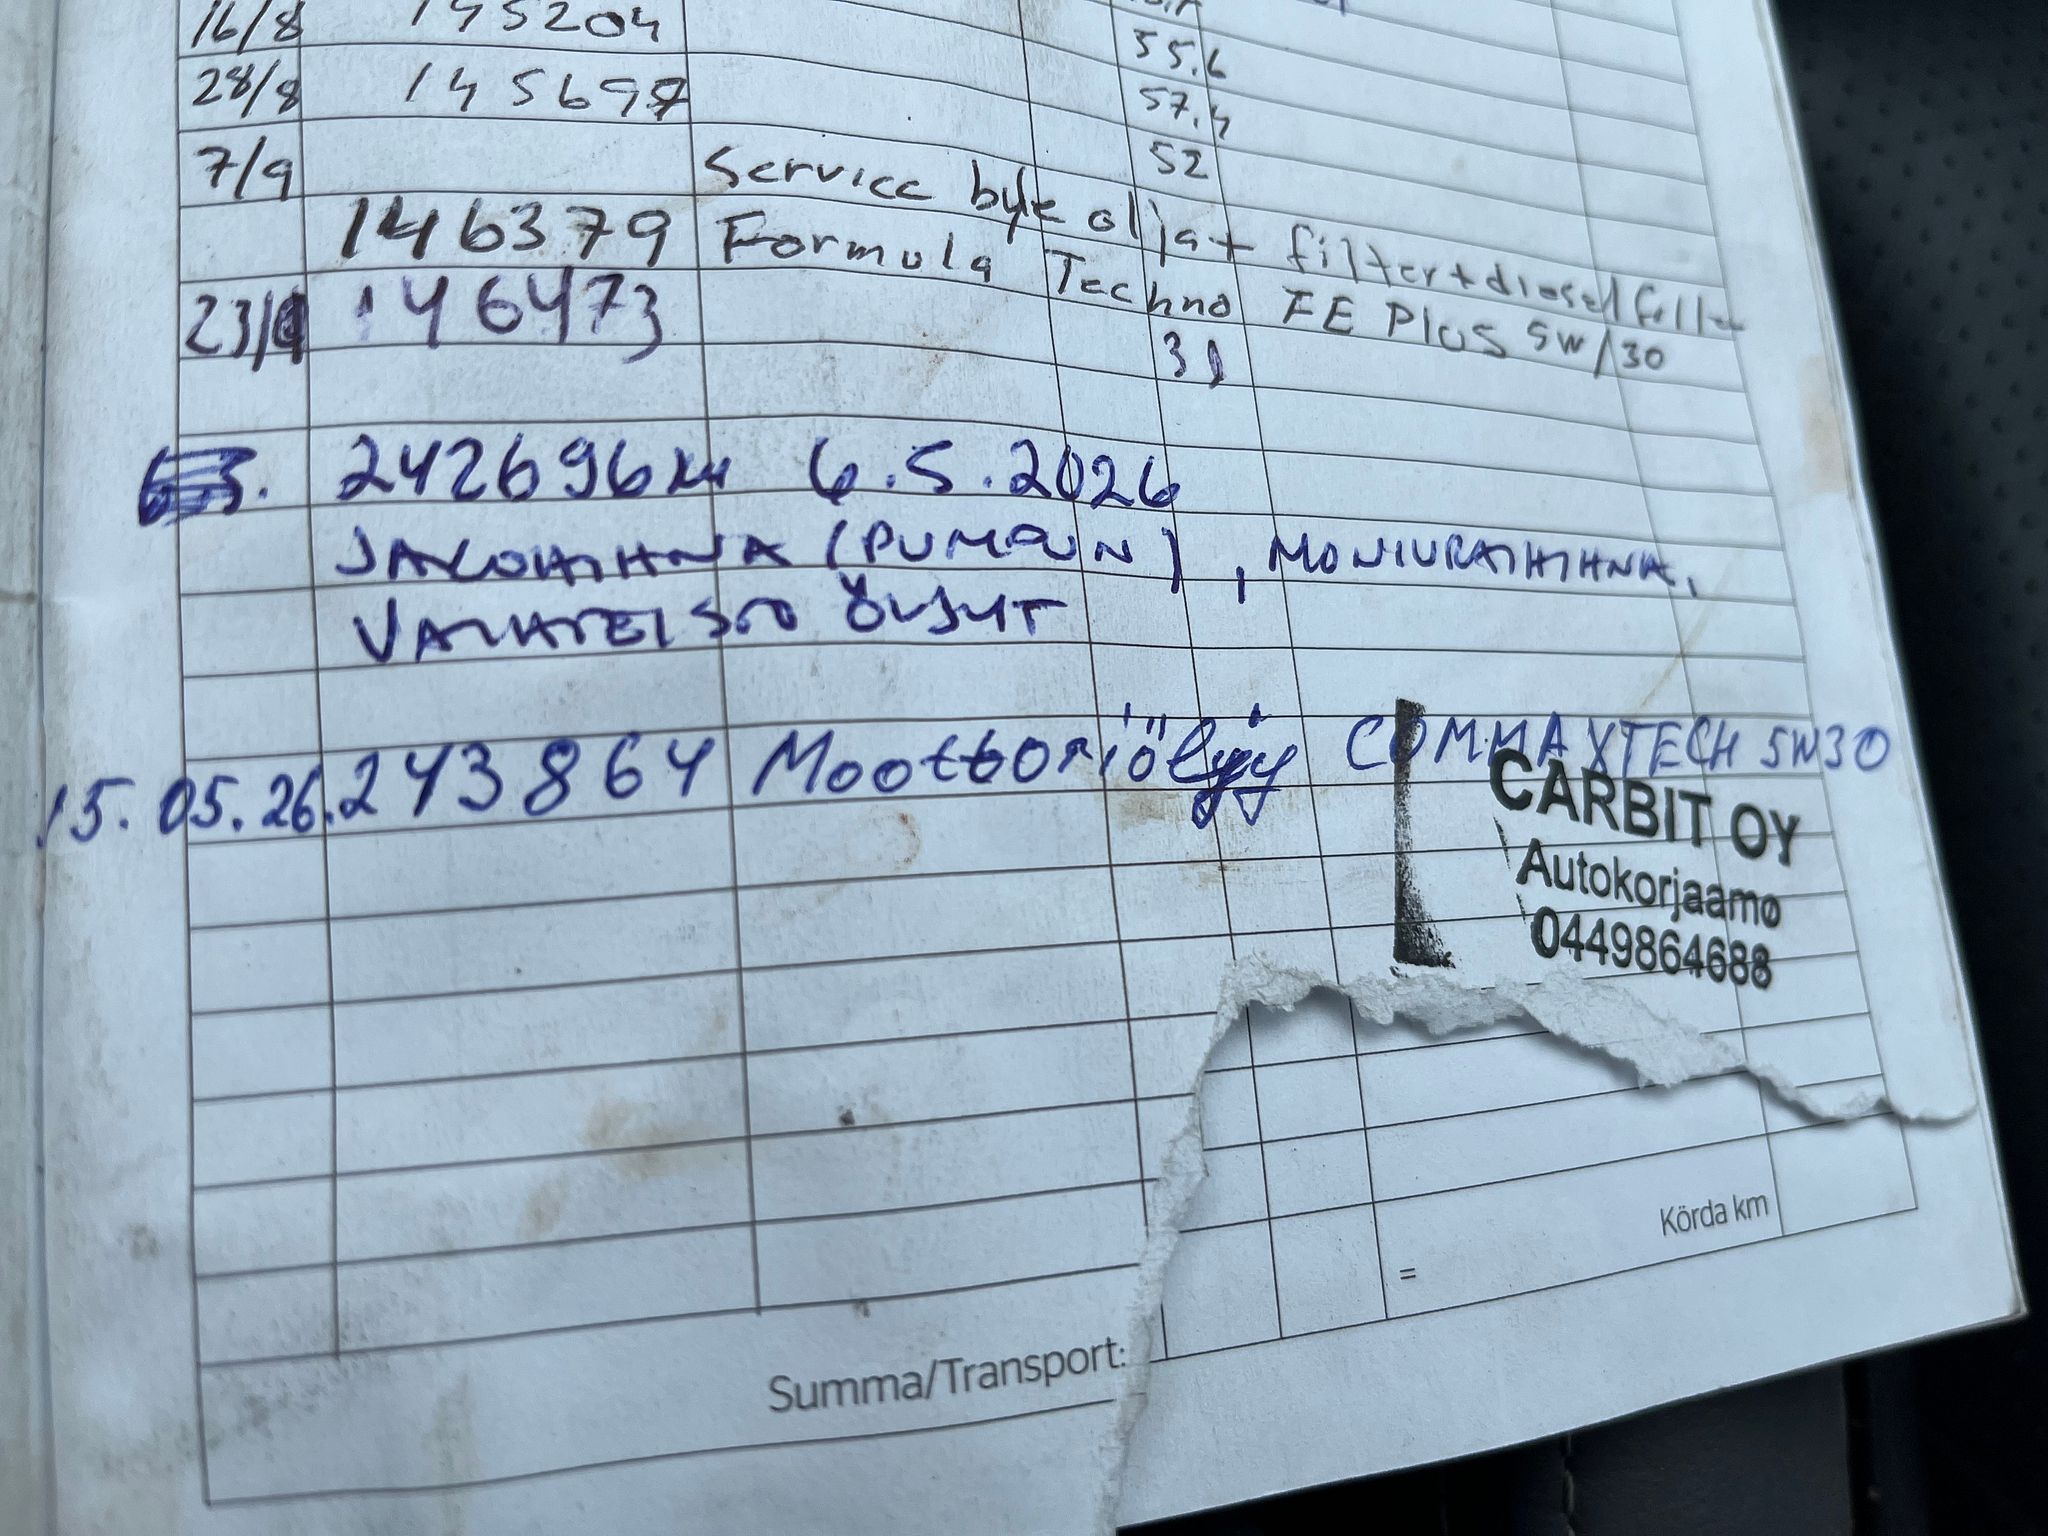 16/8 145204
55.6
28/8 145697
57.4
7/9 52
Service byte olja + filter + diesel filter
146379 Formula Techno FE Plus 5W/30
23/9 146473 31
242696 km 6.5.2026
JAKOHIHNA (PUMPUN), MONIURAHIHNA,
VAIHTEISTO ÖLJYT
15.05.26. 243864 Moottoriöljy COMMAXTECH 5W30
CARBIT OY
Autokorjaamo
0449864688
Körda km
=
Summa/Transport: